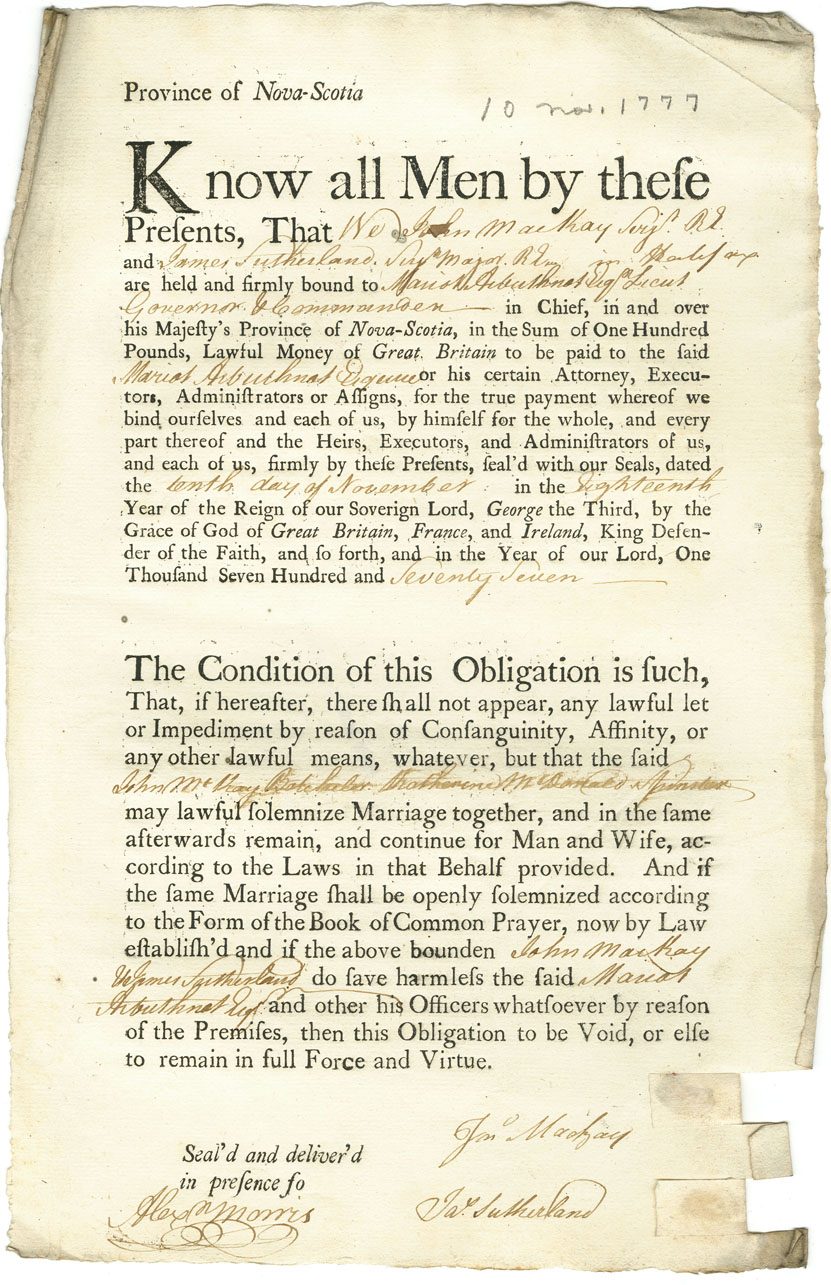 Province of Nova-Scotia
10 nov. 1777
Know all Men by theſe
Preſents, That We John MacKay Serjt. R E
and James Sutherland Serjt Major R E in Halifax
are held and firmly bound to Mariot Arbuthnot Esqr. Lieut
Governor & Commander in Chief, in and over
his Majeſty's Province of Nova-Scotia, in the Sum of One Hundred
Pounds, Lawful Money of Great Britain to be paid to the ſaid
Mariot Arbuthnot Esquire or his certain Attorney, Execu-
tors, Adminiſtrators or Aſſigns, for the true payment whereof we
bind ourſelves and each of us, by himſelf for the whole, and every
part thereof and the Heirs, Executors, and Adminiſtrators of us,
and each of us, firmly by theſe Preſents, ſeal'd with our Seals, dated
the tenth day of November in the Eighteenth
Year of the Reign of our Soverign Lord, George the Third, by the
Grace of God of Great Britain, France, and Ireland, King Defen-
der of the Faith, and ſo forth, and in the Year of our Lord, One
Thouſand Seven Hundred and Seventy Seven
The Condition of this Obligation is ſuch,
That, if hereafter, there ſhall not appear, any lawful let
or Impediment by reaſon of Conſanguinity, Affinity, or
any other lawful means, whatever, but that the ſaid
John McKay Batchelor & Katherine McDonald Spinster
may lawful ſolemnize Marriage together, and in the ſame
afterwards remain, and continue for Man and Wife, ac-
cording to the Laws in that Behalf provided. And if
the ſame Marriage ſhall be openly ſolemnized according
to the Form of the Book of Common Prayer, now by Law
eſtabliſh'd and if the above bounden John MacKay
& James Sutherland do ſave harmleſs the ſaid Mariot
Arbuthnot Esqr. and other his Officers whatſoever by reaſon
of the Premiſes, then this Obligation to be Void, or elſe
to remain in full Force and Virtue.
Seal'd and deliver'd
in preſence ſo
Jno MacKay
Alexr. Morris
Jas. Sutherland